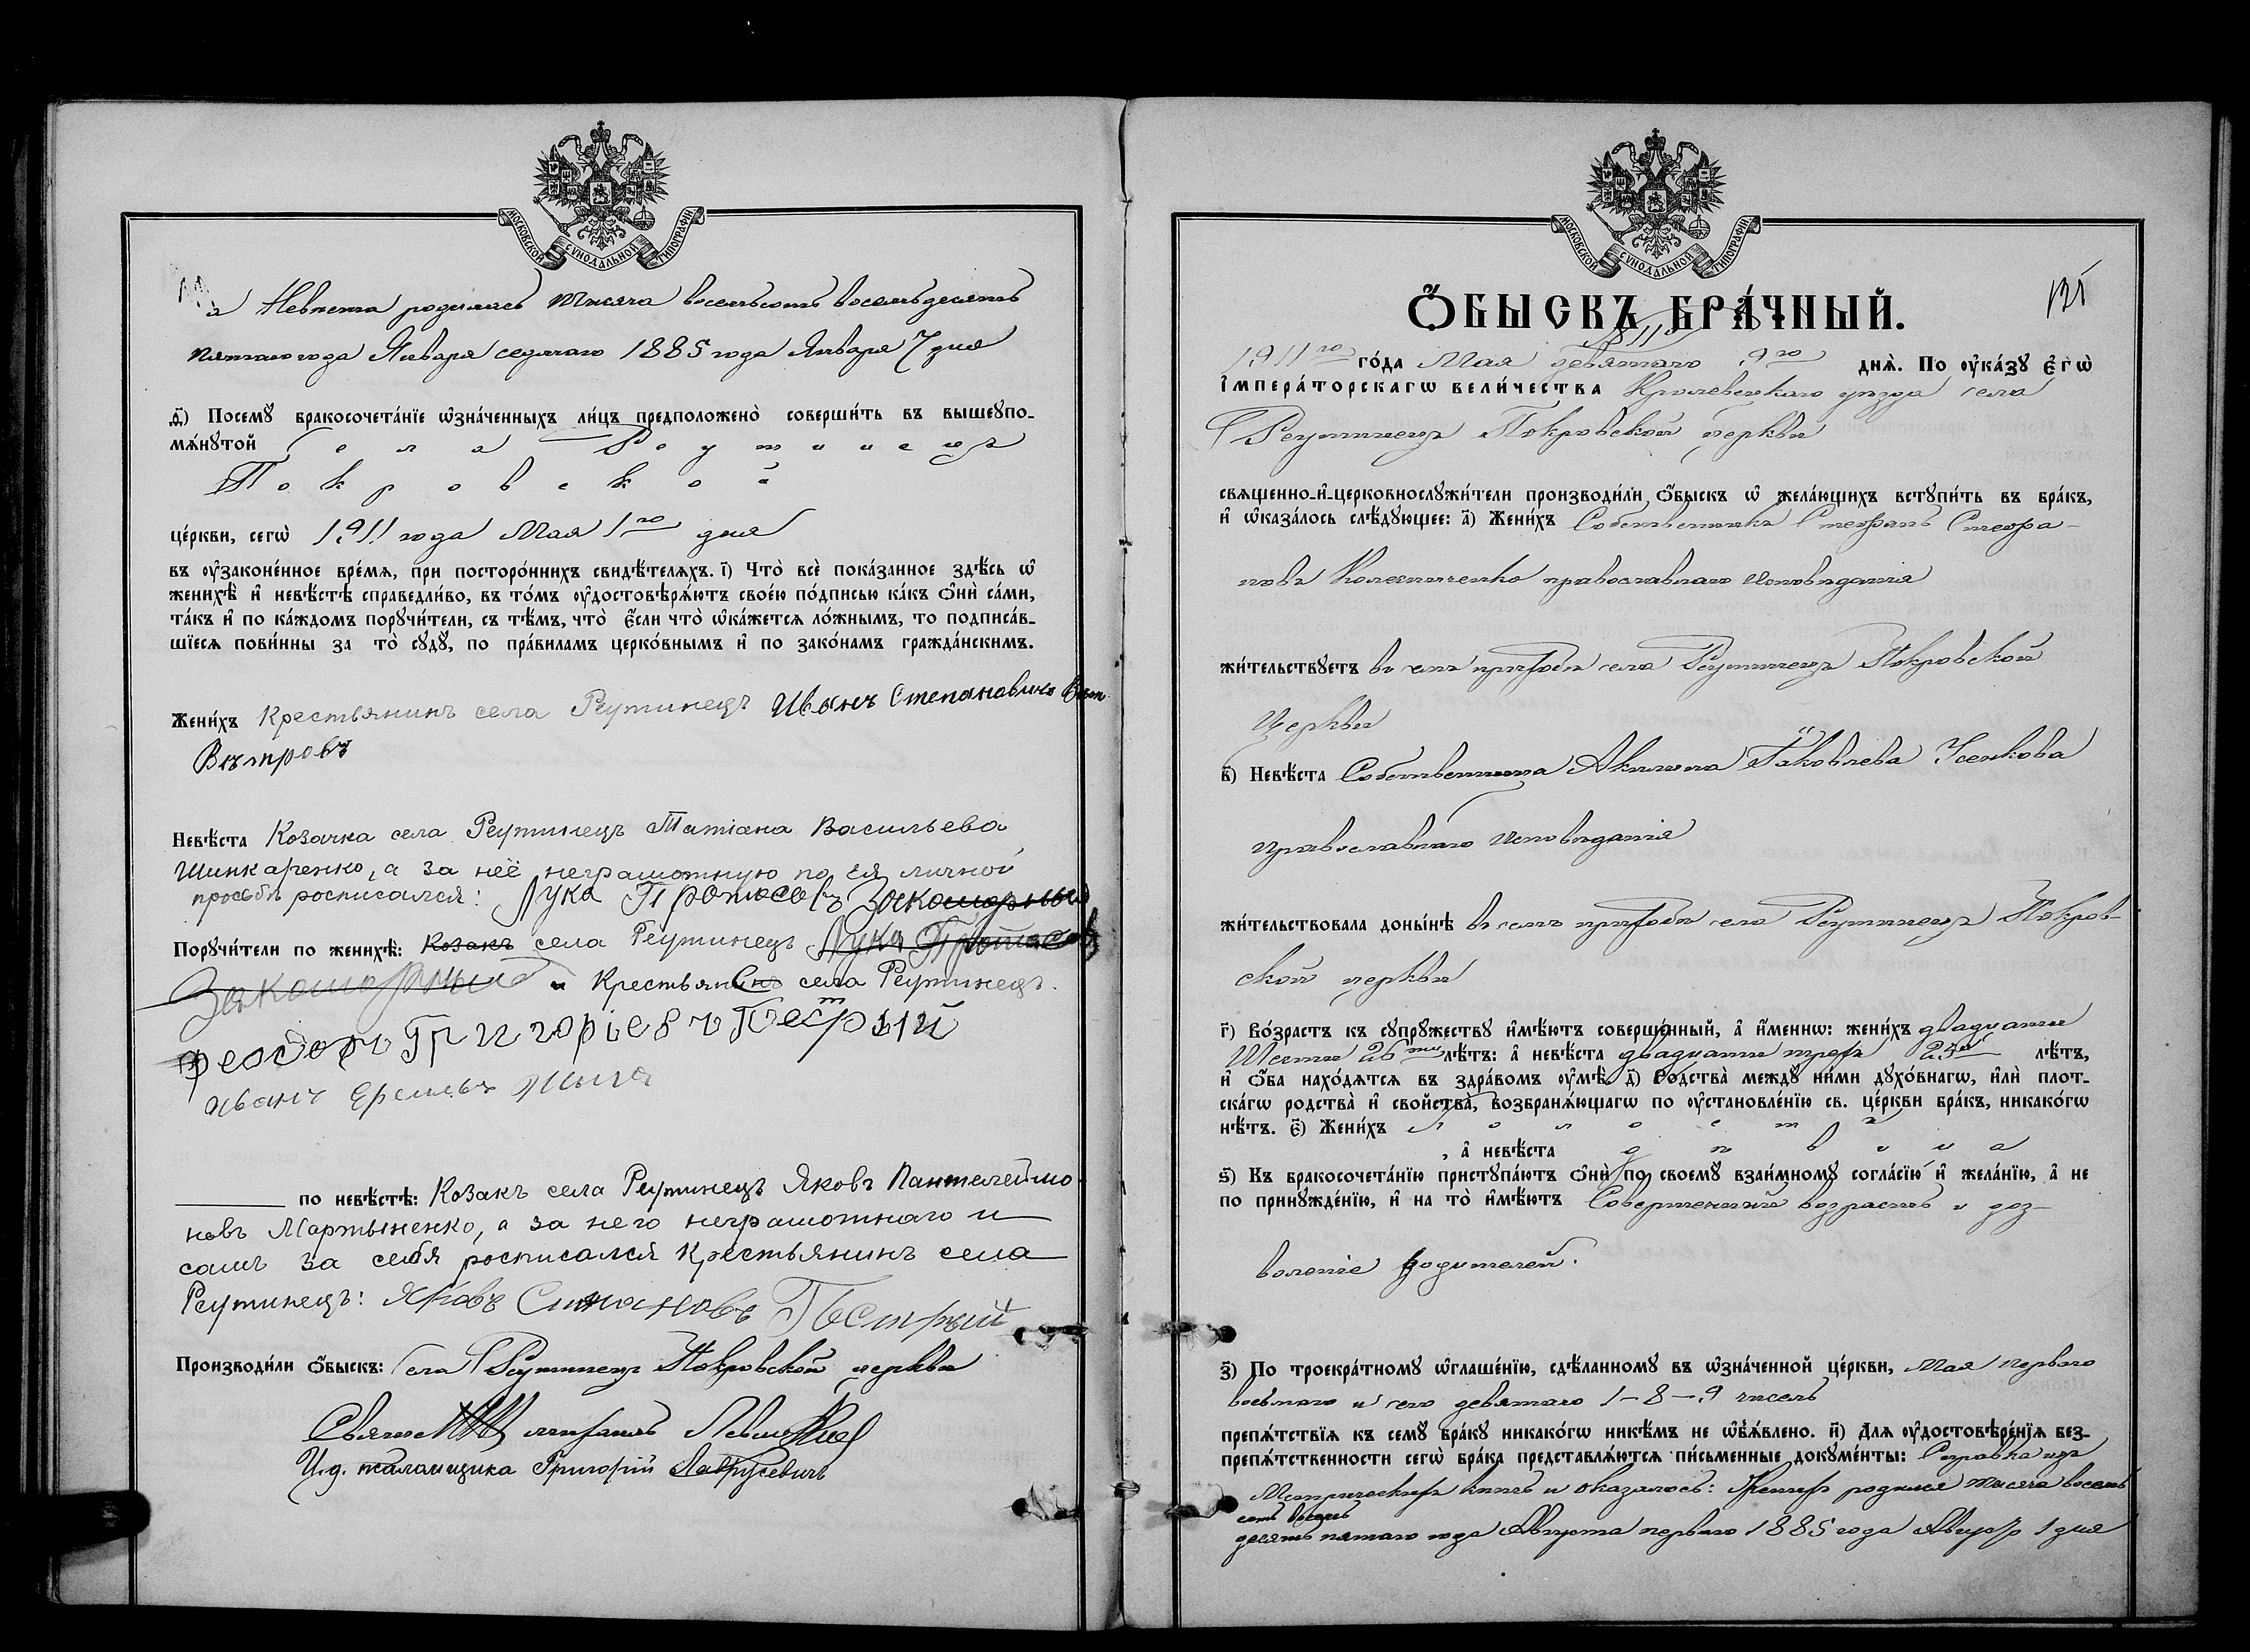 МОСКОВСКОЙ СѴНОДАЛЬНОЙ ТИПОГРАФІИ
а Невѣста родилась тысяча восемьсотъ восемьдесятъ
пятаго года Января седьмаго 1885 года Января 7 дня
д҃) Посемꙋ̀ бракосочета́нїе ѡ҆зна́ченныхъ ли́цъ предположено̀ соверши́ть въ вышеꙋпо-
мѧ́нꙋтой Села Реутинецъ
Покровской
це́ркви, сегѡ̀ 1911 года Мая 1го дня
въ ᲂу҆законе́нное вре́мѧ, при посторо́ннихъ свидѣ́телѧхъ. і҃) Что̀ всѐ пока́занное здѣ́сь ѡ҆
женихѣ̀ и҆ невѣ́стѣ справедли́во, въ то́мъ ᲂу҆достовѣрѧ́ютъ свое́ю по́дписью ка́къ ѻ҆нѝ са́ми,
та́къ и҆ по ка́ждомъ порꙋчи́тели, съ тѣ́мъ, что̀ є҆́сли что̀ ѡ҆ка́жетсѧ ло́жнымъ, то подписа́в-
шїесѧ пови́нны за то̀ сꙋдꙋ̀, по пра́виламъ церко́внымъ и҆ по зако́намъ гражда́нскимъ.
Жени́хъ Крестьянинъ села Реутинецъ Иванъ Степановичъ
Вѣтровъ
Невѣ́ста Козачка села Реутинецъ Татіана Васильева
Шинкаренко, а за неё неграмотную по ея личной
просьбѣ росписался: Лука Протасовъ Закоморный
Порꙋчи́тели по женихѣ̀: Козакъ села Реутинецъ Лука Протасовъ
Закоморный и Крестьянинъ села Реутинецъ
Феодоръ Григоріевъ Пестрый
Иванъ
по невѣ́стѣ: Козакъ села Реутинецъ Яковъ Пантелеймо-
новъ Мартыненко, а за него неграмотнаго и
самъ за себя росписался Крестьянинъ села
Реутинецъ: Яковъ Пестрый
Производи́ли ѻ҆́быскъ: Села Реутинецъ Покровской церкви
И.д. псаломщика Григорій Лаврусевичъ
МОСКОВСКОЙ СѴНОДАЛЬНОЙ ТИПОГРАФІИ
Ѻ҆БЫСКЪ БРА́ЧНЫЙ.
1911го го́да Мая девятаго 9го днѧ̀. По ᲂу҆ка́зꙋ Е҆гѡ̀
І҆мпера́торскагѡ вели́чества Кролевецкаго уѣзда села
Реутинецъ Покровской церкви
свѧщенно-и҆-церковнослꙋжи́тели производи́ли ѻ҆́быскъ ѡ҆ жела́ющихъ встꙋпи́ть въ бра́къ,
и҆ ѡ҆каза́лось слѣ́дꙋющее: а҃) Жени́хъ Собственникъ Стефанъ Стефа-
новъ Колесниченко православнаго исповѣданія
жи́тельствꙋетъ въ семъ приходѣ села Реутинецъ Покровской
Церкви
в҃) Невѣ́ста Собственница Акилина Іаковлева Усенкова
православнаго исповѣданія
жи́тельствовала доны́нѣ въ семъ приходѣ села Реутинецъ Покров-
ской церкви
г҃) Во́зрастъ къ сꙋпрꙋ́жествꙋ и҆мѣ́ютъ соверше́нный, а҆ и҆́меннѡ: жени́хъ двадцати
Шести 26ти лѣ́тъ: а҆ невѣ́ста двадцати трехъ 23х лѣ́тъ,
и҆ ѻ҆́ба нахо́дѧтсѧ въ здра́вомъ ᲂу҆мѣ̀ д҃) Родства̀ междꙋ̀ ни́ми дꙋхо́внагѡ, и҆лѝ плот-
ска́гѡ родства̀ и҆ свойства̀, возбранѧ́ющагѡ по ᲂу҆становле́нїю св. це́ркви бра́къ, никако́гѡ
нѣ́тъ. є҃) Жени́хъ холостъ
, а҆ невѣ́ста дѣвица
ѕ҃) Къ бракосочета́нїю пристꙋпа́ютъ ѻ҆нѝ по своемꙋ̀ взаи́мномꙋ согла́сїю и҆ жела́нїю, а҆ не
по принꙋжде́нїю, и҆ на то̀ и҆мѣ́ютъ Совершенный возрастъ и доз-
воленіе родителей.
з҃) По троекра́тномꙋ ѡ҆глаше́нїю, сдѣ́ланномꙋ въ ѡ҆зна́ченной це́ркви, Мая перваго
восьмаго и сего девятаго 1-8-9 чиселъ
препѧ́тствїѧ къ семꙋ̀ бра́кꙋ никако́гѡ никѣ́мъ не ѡ҆б̾ѧ́влено. и҃) Длѧ ᲂу҆достовѣре́нїѧ без-
препѧ́тственности сегѡ̀ бра́ка представлѧ́ютсѧ пи́сьменные докꙋме́нты: Справка изъ
Метрическихъ книгъ и оказалось: Женихъ родился тысяча восемь
сотъ восемь
десятъ пятаго года Августа перваго 1885 года Августа 1 дня